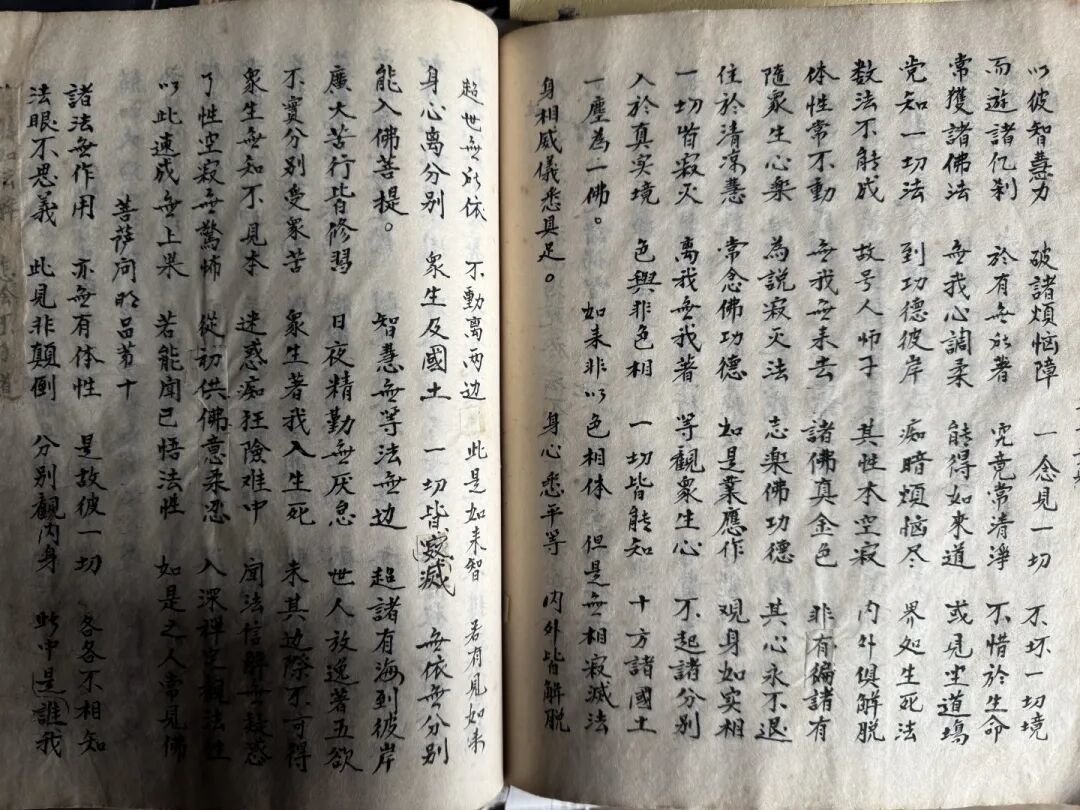 以彼智慧力 破諸煩惱障 一念見一切 不坏一切境
而遊諸仏刹 於有無所著 究竟常清淨 不惜於生命
常獲諸佛法 無我心調柔 能得如來道 或見坐道場
党知一切法 到功德彼岸 痴暗煩惱尽 界処生死法
数法不能成 故号人师子 其性本空寂 内外俱解脱
体性常不動 無我無来去 諸佛真金色 非有徧諸有
隨衆生心楽 為説寂灭法 志楽佛功德 其心永不退
住於清凉慧 常念佛功德 如是業應作 观身如实相
一切皆寂灭 离我無我著 等観衆生心 不起諸分别
入於真实境 色與非色相 一切皆能知 十方諸國土
一塵為一佛。 如来非以色相体 但是無相寂滅法
身相威儀悉具足。 身心悉平等 内外皆解脱
超世無所依 不動离两边 此是如来智 若有見如来
身心离分别 衆生及國土 一切皆寂滅 無依無分别
能入佛菩提。 智慧無等法無边 超諸有海到彼岸
廣大苦行皆修習 日夜精勤無厌怠 世人放逸著五欲
不實分别受衆苦 衆生著我入生死 求其边際不可得
衆生無知不見本 迷惑痴狂險难中 聞法信解無疑惑
了性空寂無驚怖 從初供佛意柔忍 入深禅定観法性
以此速成無上果 若能聞已悟法性 如是之人常見佛
菩薩问明品第十
諸法無作用 亦無有体性 是故彼一切 各各不相知
法眼不思義 此見非顛倒 分别観内身 此中是誰我